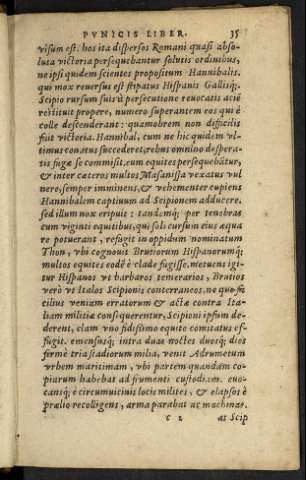 PVNICIS LIBER. 35
visum est. hos ita dispersos Romani quasi abso-
luta victoria persequebantur solutis ordinibus,
ne ipsi quidem scientes propositum Hannibalis.
qui mox reuersus est stipatus Hispanis Gallisq;.
Scipio rursum suis à persecutione reuocatis aciē
restituit propere, numero superantem eos qui è
colle descenderant: quamobrem non difficilis
fuit victoria. Hannibal, cum ne hic quidem vl-
timus conatus succederet, rebus omnino despera-
tis fugæ se commisit, eum equites persequebātur,
& inter cæteros multos Masanissa vexatus vul
nere, semper imminens, & vehementer cupiens
Hannibalem captiuum ad Scipionem adducere.
sed illum nox eripuit: tandemq; per tenebras
cum viginti equitibus, qui soli cursum eius æqua
re potuerant, refugit in oppidum nominatum
Thon, vbi cognouit Brutiorum Hispanorumq;
multos equites eodē è clade fugisse. metuens igi
tur Hispanos vt barbaros temerarios, Brutios
verò vt Italos Scipionis conterraneos, ne quo fa
cilius veniam erratorum & actæ contra Ita-
liam militiæ consequerentur, Scipioni ipsum de-
derent, clam vno fidissimo equite comitatus ef-
fugit. emensusq; intra duas noctes duosq; dies
fermè tria stadiorum milia, venit Adrumetum
vrbem maritimam, vbi partem quandam co-
piarum habebat ad frumenti custodiam. euo-
cansq; è circumuicinis locis milites, & elapsos è
prælio recolligens, arma parabat ac machinas.
c 2 at Scip